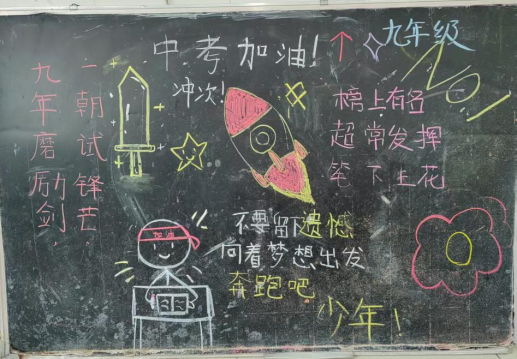 中考加油!
九年级
No.
冲次!
九年磨励剑,
一朝试锋芒.
榜上有名
超常发挥
笔下生花
加油
不要留下遗憾
向着梦想出发
奔跑吧
少年!